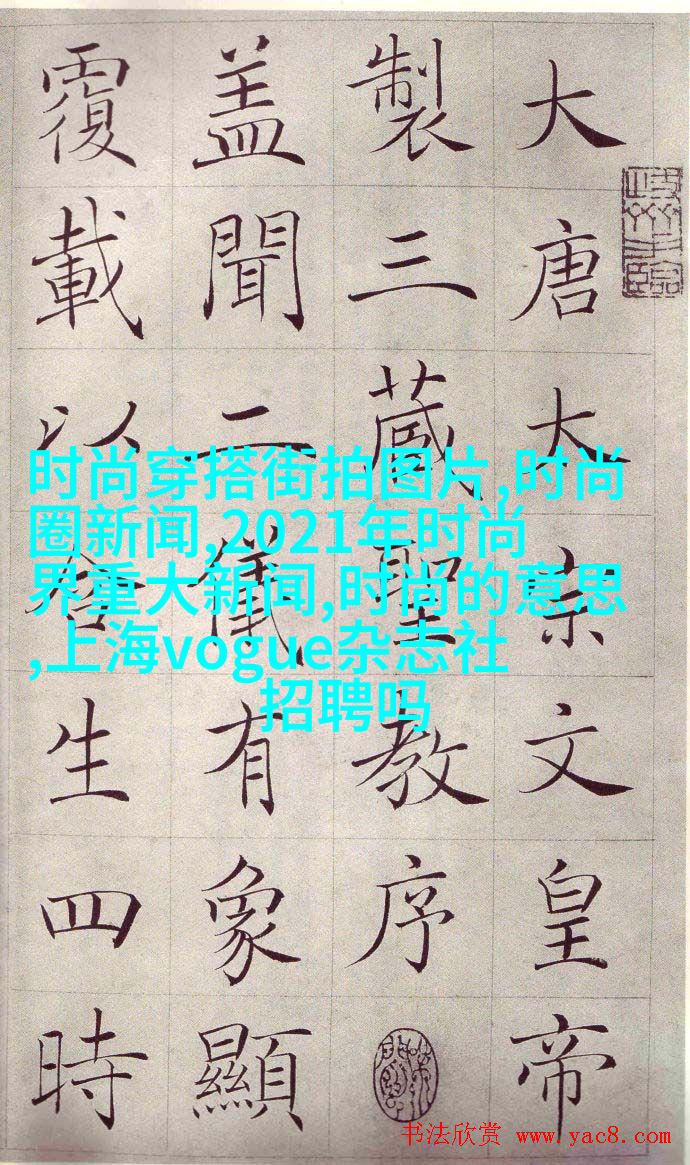 大唐太宗文皇帝
製三藏聖教序
盖聞二儀有象顯
覆載以含生四時
时尚穿搭街拍图片,时尚
圈新闻,2021年时尚
界重大新闻,时尚的意思
,上海vogue杂志社
招聘吗
书法欣赏 www.yac8.com